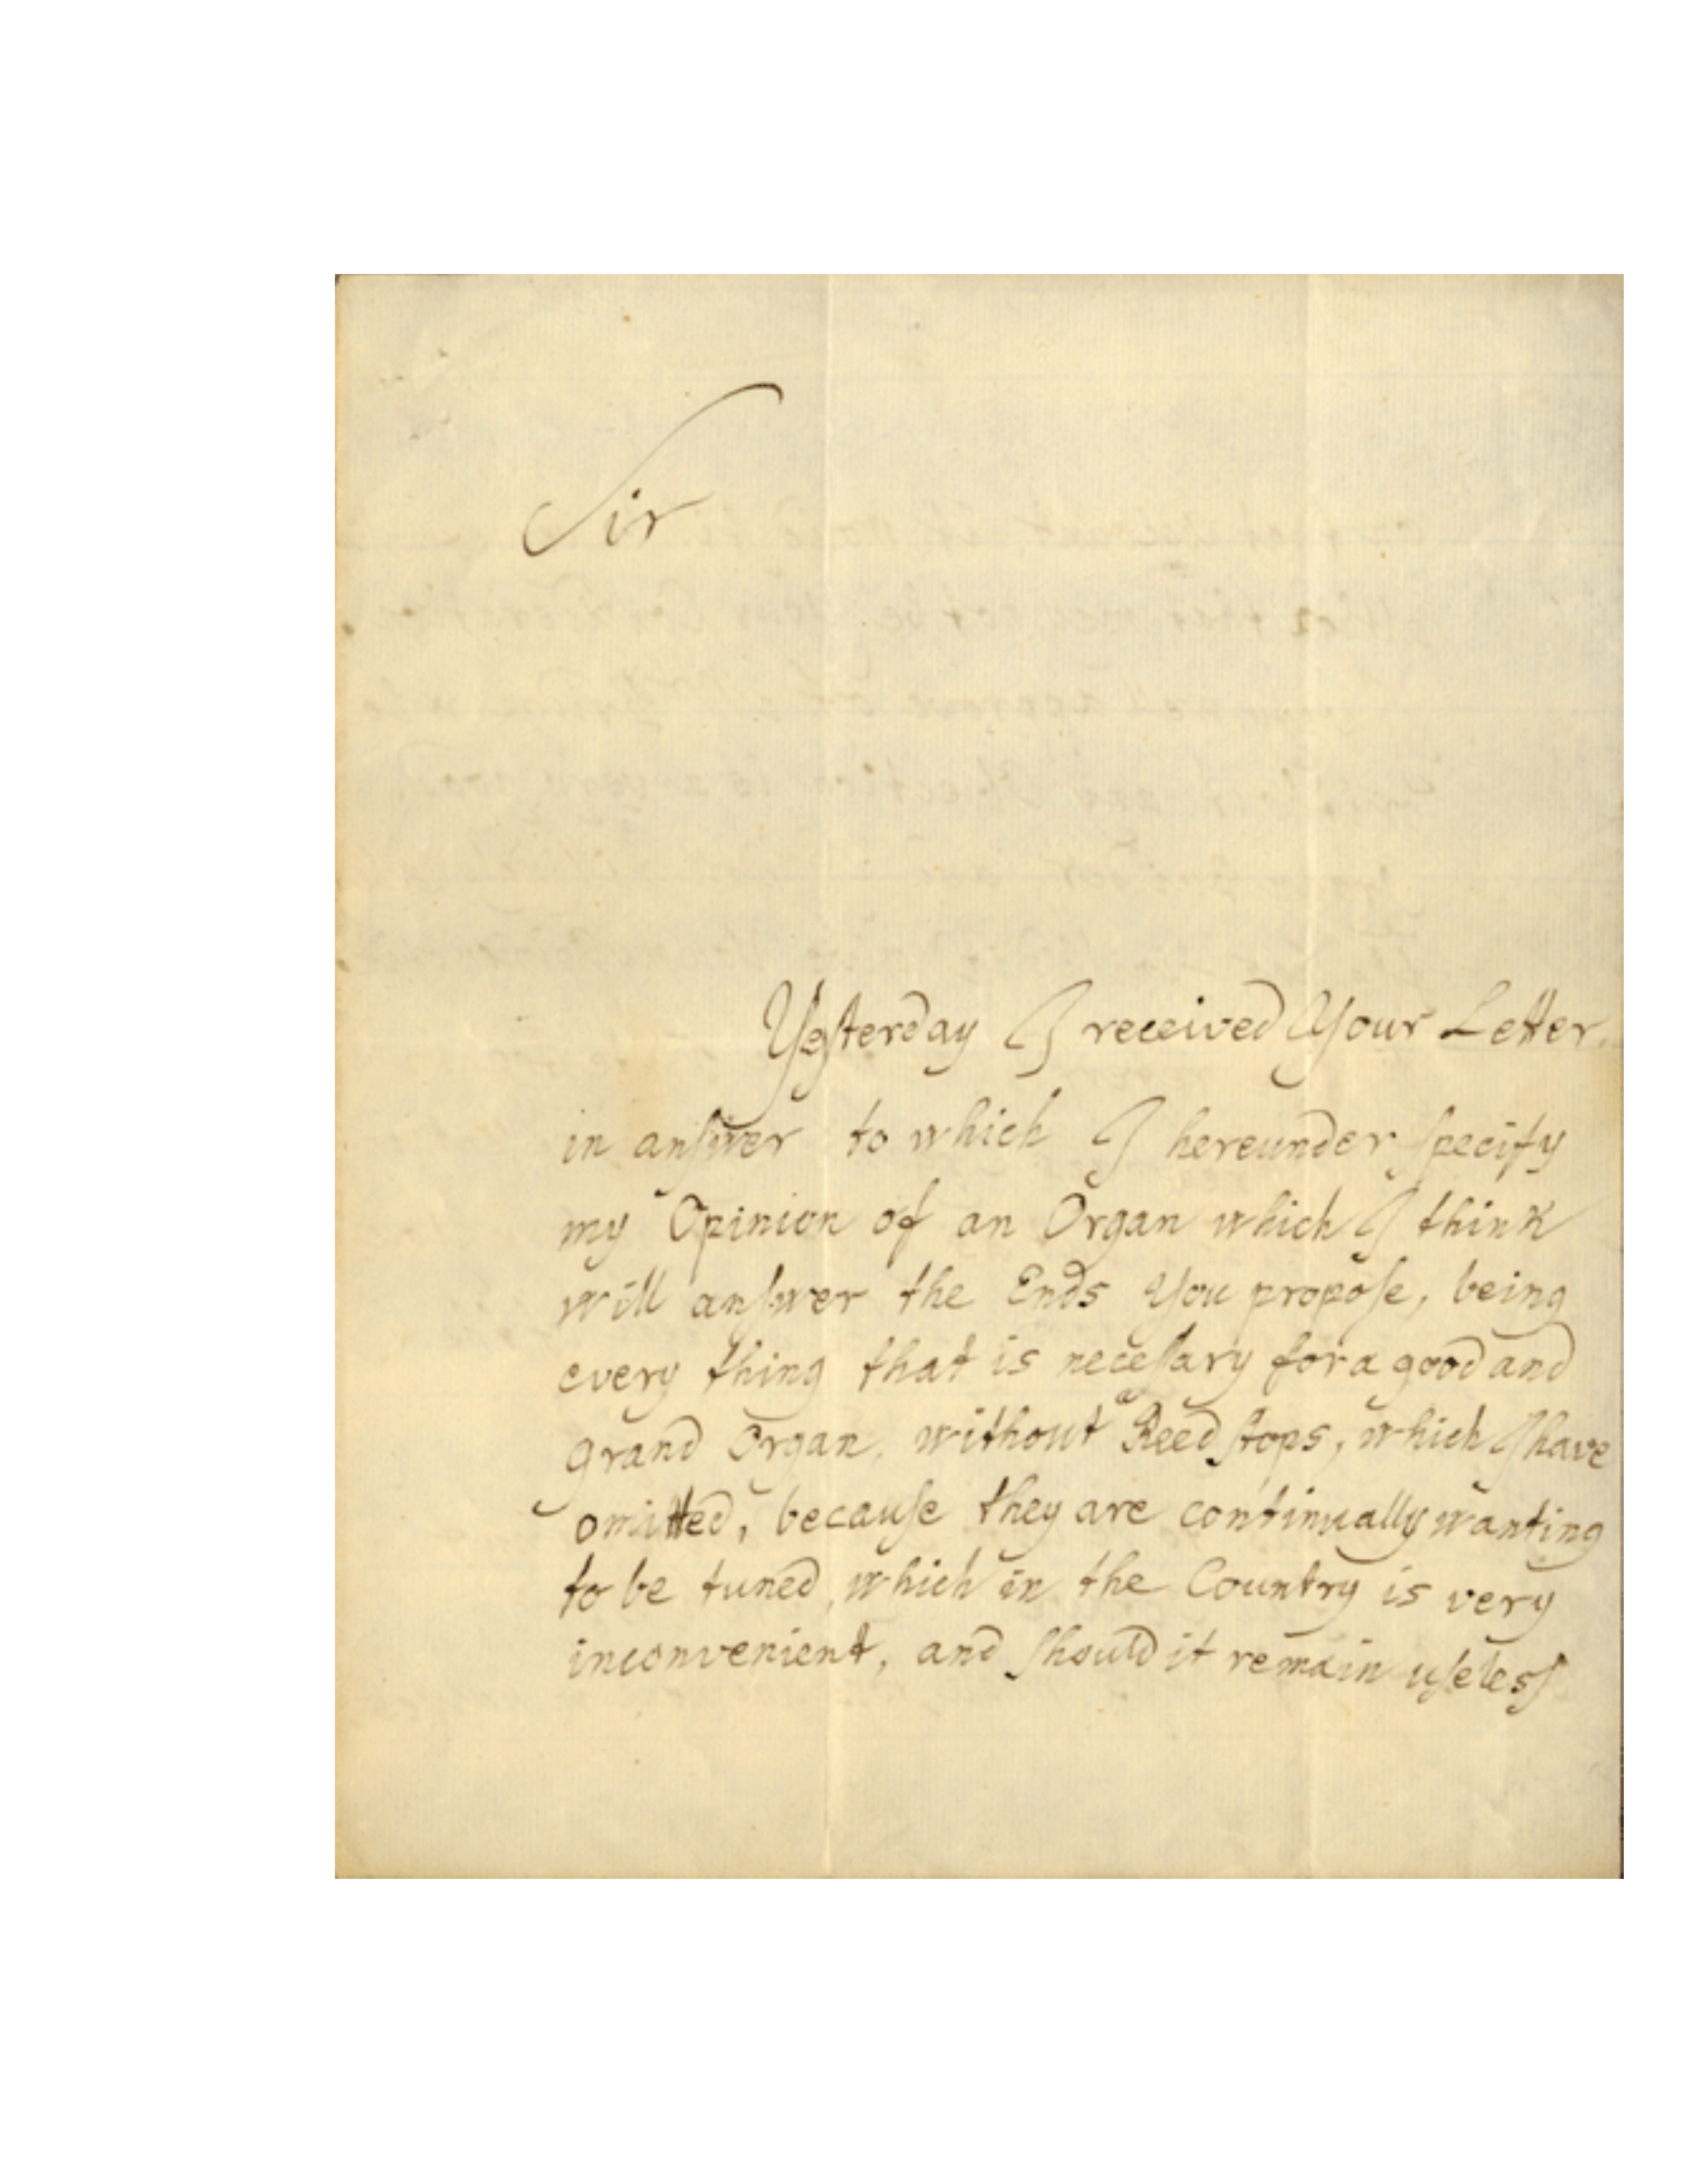 Sir
Yesterday I received Your Letter,
in anſwer to which I hereunder ſpecify
my Opinion of an Organ which I think
will anſwer the Ends You propoſe, being
every thing that is neceſsary for a good and
grand Organ, without Reed ſtops, which I have
omitted, becauſe they are continually wanting
to be tuned, which in the Country is very
inconvenient, and ſhould it remain uſeleſs